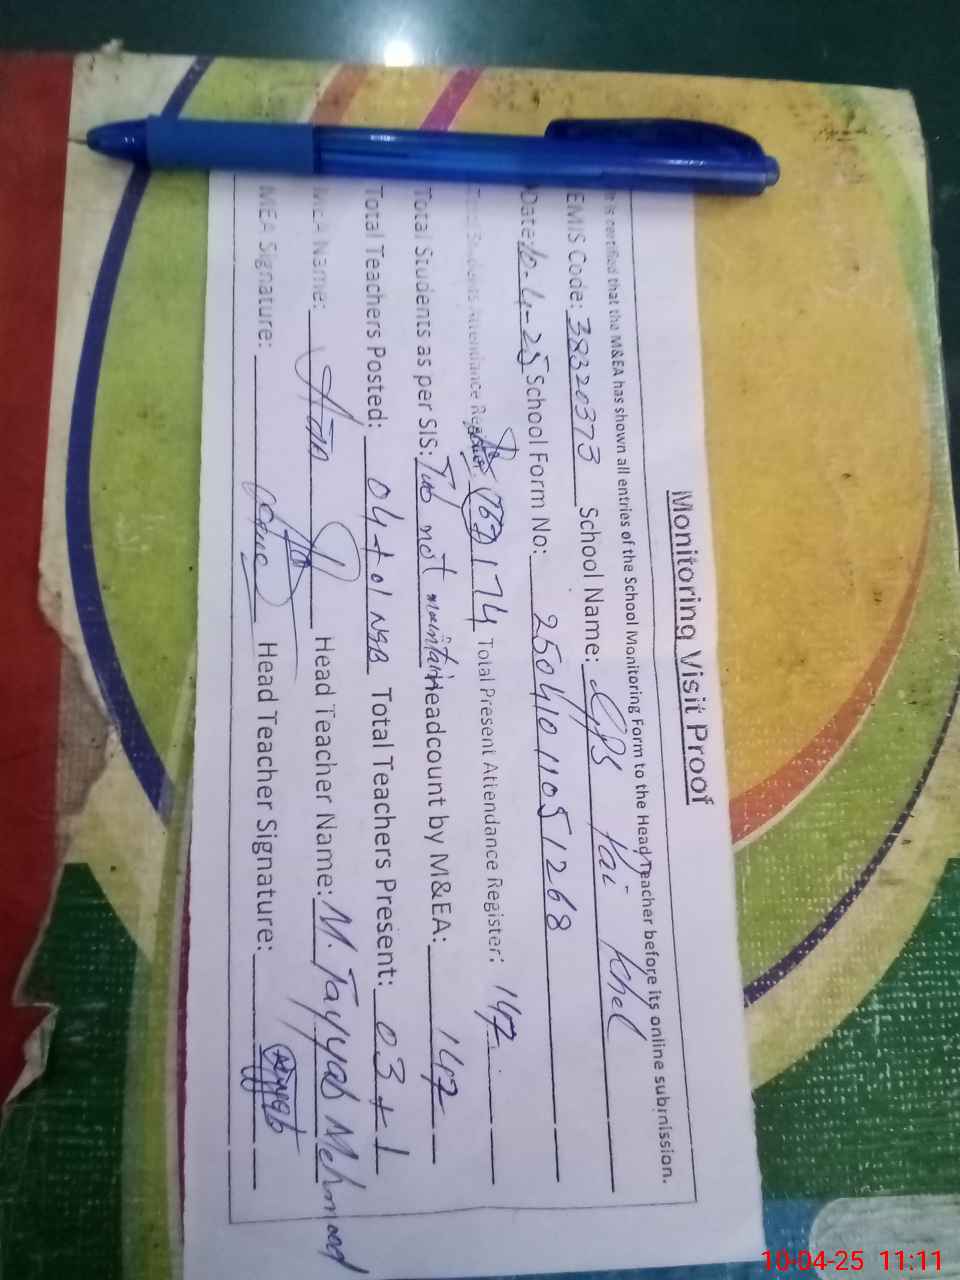 Monitoring Visit Proof
It is certified that the M&EA has shown all entries of the School Monitoring Form to the Head Teacher before its online submission.
EMIS Code: 38320373 School Name: GPS Pai Khel
Date: 10-4-25 School Form No: 25041011051268
Total Students Attendance Register 174 Total Present Attendance Register: 147
Total Students as per SIS: Tab not maintain Headcount by M&EA: 147
Total Teachers Posted: 04+01 NSB Total Teachers Present: 03+1
MEA Name: Head Teacher Name: M. Tayyab Mehmood
MEA Signature: Head Teacher Signature:
10-04-25 11:11